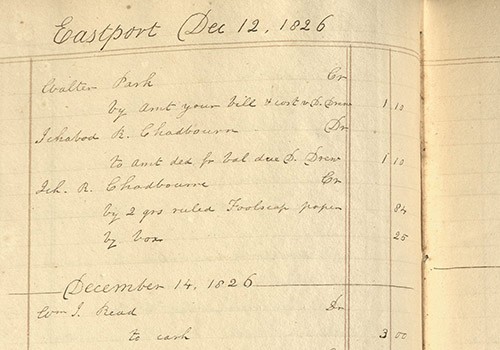 Eastport Dec 12, 1826
Walter Park Cr
by amt your bill & cost v D. Drew 1 10
Ichabod R. Chadbourn Dr
to amt ded fr bal due D. Drew 1 10
Ich. R. Chadbourne Cr
by 2 qrs ruled Foolscap paper 84
by box 25
December 14, 1826
Wm J. Read Dr
to cash 3 00